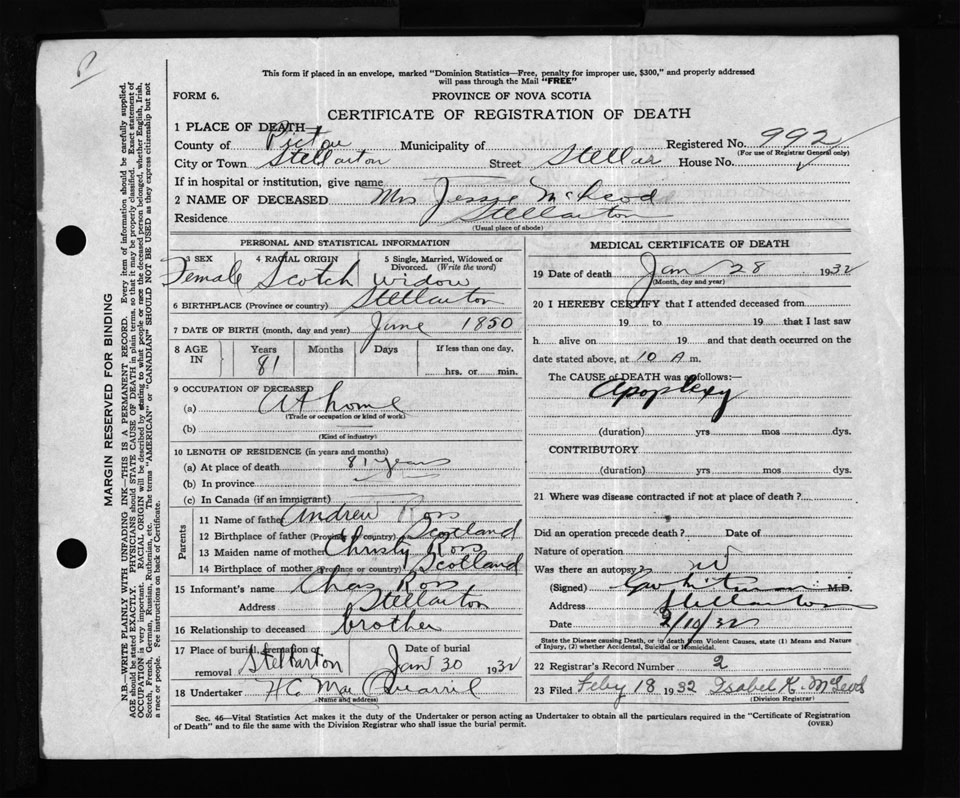 This form if placed in an envelope, marked "Dominion Statistics—Free, penalty for improper use, $300," and properly addressed
will pass through the Mail "FREE"
FORM 6. PROVINCE OF NOVA SCOTIA
CERTIFICATE OF REGISTRATION OF DEATH
1 PLACE OF DEATH—
County of Pictou Municipality of Registered No. 992
(For use of Registrar General only)
City or Town Stellarton Street Stellar House No.
If in hospital or institution, give name
2 NAME OF DECEASED Mrs Jessie McLeod
Residence Stellarton
(Usual place of abode)
PERSONAL AND STATISTICAL INFORMATION
3 SEX 4 RACIAL ORIGIN 5 Single, Married, Widowed or Divorced. (Write the word)
Female Scotch widow
6 BIRTHPLACE (Province or country) Stellarton
7 DATE OF BIRTH (month, day and year) June 1850
8 AGE IN Years Months Days If less than one day,
81 hrs. or min.
9 OCCUPATION OF DECEASED
(a) At home
(Trade or occupation or kind of work)
(b)
(Kind of industry)
10 LENGTH OF RESIDENCE (in years and months)
(a) At place of death 81 years
(b) In province
(c) In Canada (if an immigrant)
Parents
11 Name of father Andrew Ross
12 Birthplace of father (Province or country) Scotland
13 Maiden name of mother Christy Ross
14 Birthplace of mother (Province or country) Scotland
15 Informant's name Chas Ross
Address Stellarton
16 Relationship to deceased brother
17 Place of burial, cremation or removal Stellarton Date of burial Jan 30 1932
18 Undertaker H C Mac Quarrie
(Name and address)
MEDICAL CERTIFICATE OF DEATH
19 Date of death Jan 28 1932
(Month, day and year)
20 I HEREBY CERTIFY that I attended deceased from
19 to 19 that I last saw
h alive on 19 and that death occurred on the
date stated above, at 10 A m.
The CAUSE of DEATH was as follows:—
Apoplexy
(duration) yrs mos dys.
CONTRIBUTORY
(duration) yrs mos dys.
21 Where was disease contracted if not at place of death?
Did an operation precede death? Date of
Nature of operation
Was there an autopsy?
(Signed) M.D.
Address Stellarton
Date 2/10/32
State the Disease causing Death, or in death from Violent Causes, state (1) Means and Nature
of Injury, (2) whether Accidental, Suicidal or Homicidal.
22 Registrar's Record Number 2
23 Filed Feby 18 1932 Isabel K. McLeod
(Division Registrar)
Sec. 46—Vital Statistics Act makes it the duty of the Undertaker or person acting as Undertaker to obtain all the particulars required in the "Certificate of Registration
of Death" and to file the same with the Division Registrar who shall issue the burial permit. (OVER)
MARGIN RESERVED FOR BINDING
N.B.—WRITE PLAINLY WITH UNFADING INK—THIS IS A PERMANENT RECORD. Every item of information should be carefully supplied.
AGE should be stated EXACTLY. PHYSICIANS should STATE CAUSE OF DEATH in plain terms, so that it may be properly classified. Exact statement of
OCCUPATION is very important. RACIAL ORIGIN will be described by stating to what people or race the deceased person belonged, whether English, Irish,
Scotch, French, German, Russian, Ruthenian, etc. The terms "AMERICAN" or "CANADIAN" SHOULD NOT BE USED as they express citizenship but not
a race or people. Fee instructions on back of Certificate.